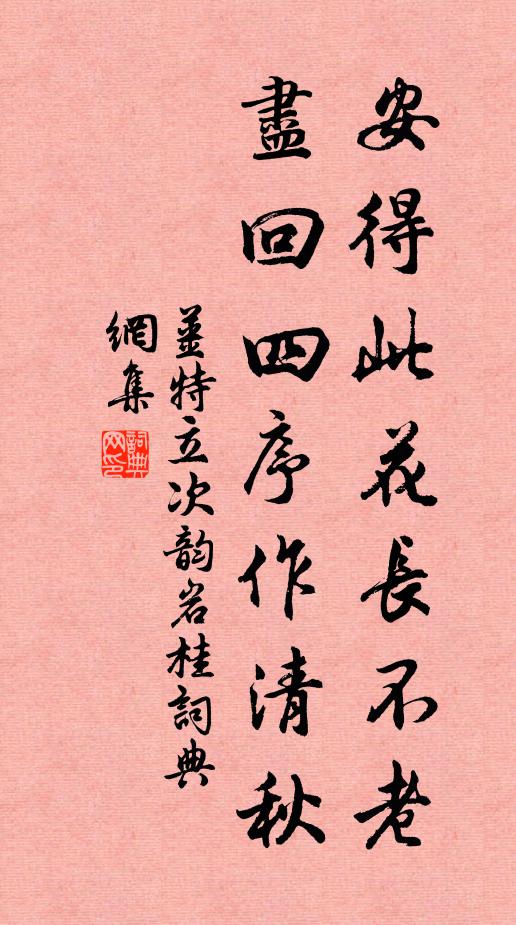 安得此花長不老
盡回四序作清秋
姜特立次韵岩桂詞典
網集
詞典網印